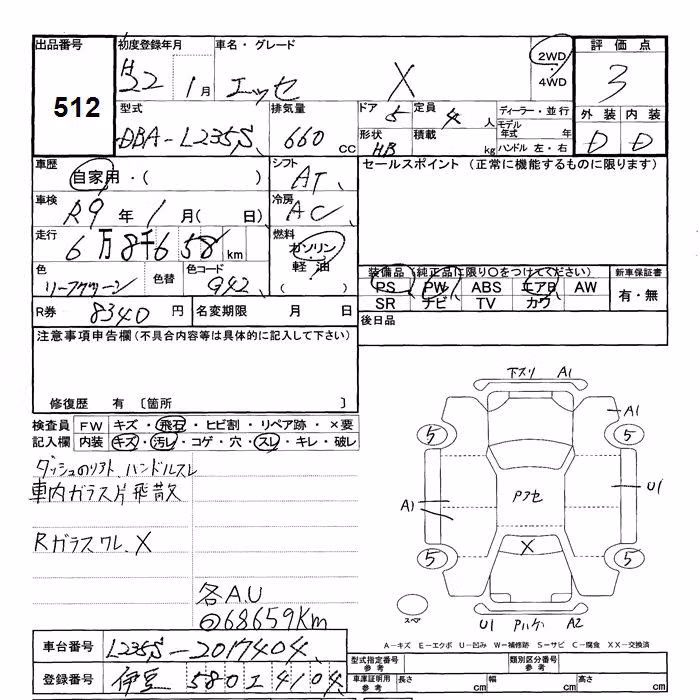 出品番号
512
初度登録年月
H22 1月
車名・グレード
エッセ X
2WD
4WD
評価点
3
型式
DBA-L235S
排気量
660 CC
ドア
5
定員
4 人
形状
HB
積載
kg
ディーラー・並行
モデル年式 年
ハンドル 左・右
外装 内装
D D
車歴
自家用・( )
シフト
AT
セールスポイント (正常に機能するものに限ります)
車検
R9年 1月( 日)
冷房
AC
走行
6万8千658km
燃料
ガソリン
軽油
( )
色
リーフグリーン
色替
色コード
G42
装備品 (純正品に限り○をつけてください)
PS PW ABS エアB AW
SR ナビ TV カワ
新車保証書
有・無
R券 8340円
名変期限 月 日
後日品
注意事項申告欄 (不具合内容等は具体的に記入して下さい)
修復歴 有 〔箇所 〕
検査員記入欄
FW キズ・飛石・ヒビ割・リペア跡・×要
内装 キズ・汚レ・コゲ・穴・スレ・キレ・破レ
ダッシュのリフト、ハンドルスレ
車内ガラス片飛散
Rガラスワレ、X
各A.U
@68659Km
下スリ A1
A1
5
5
U1
A1
Pアセ
X
5
5
スペア
U1 Pハゲ A2
A-キズ E-エクボ U-凹み W-補修跡 S-サビ C-腐食 XX-交換済
車台番号
L235S-2017404
登録番号
伊豆 580 I 4104
型式指定番号 参考
類別区分番号 参考
車庫証明用 参考
長さ cm
幅 cm
高さ cm